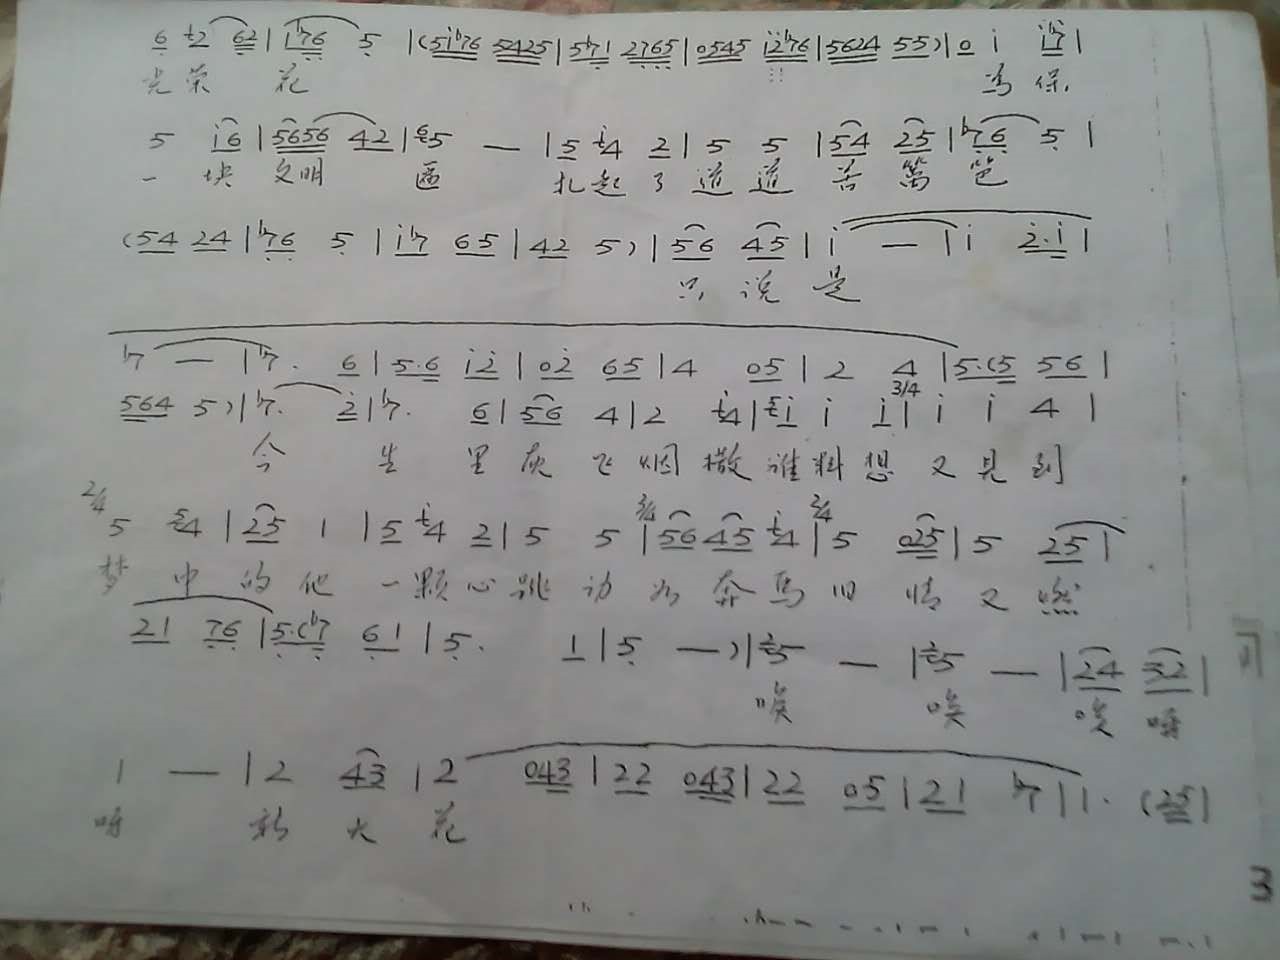 6 2 62 | 1 b76 5 | (51b76 5425 | 5b71 2765 | 0545 i2b76 | 5624 55) | 0 i ib7 |
光荣 花 为 保
5 i6 | 5656 42 | 5 — | 5 4 2 | 5 5 | 54 25 | b76 5 |
一 块 文明 匾 扎起了道道苦篱笆
(54 24 | b76 5 | ib7 65 | 42 5) | 56 45 | i — | i 2·i |
只 说 是
b7 — | b7· 6 | 5·6 i2 | 02 65 | 4 05 | 2 4 | 5·(5 56 |
564 5) | b7· 2 | b7· 6 | 56 4 | 2 4 | i i i | 3/4 i i 4 |
今 生 里 灰 飞 烟 撒 谁 料 想 又 见 到
2/4 5 4 | 25 1 | 5 4 2 | 5 5 | 3/4 56 45 4 | 2/4 5 025 | 5 25 |
梦 中 的 他 一颗心跳 动 如 奔 马 旧 情 又 燃
21 76 | 5·(b7 61 | 5· 1 | 5 —) | 5 — | 5 — | 24 32 |
唉 唉 唉
1 — | 2 43 | 2 043 | 22 043 | 22 05 | 21 b7 | 1· (25 |
花
3